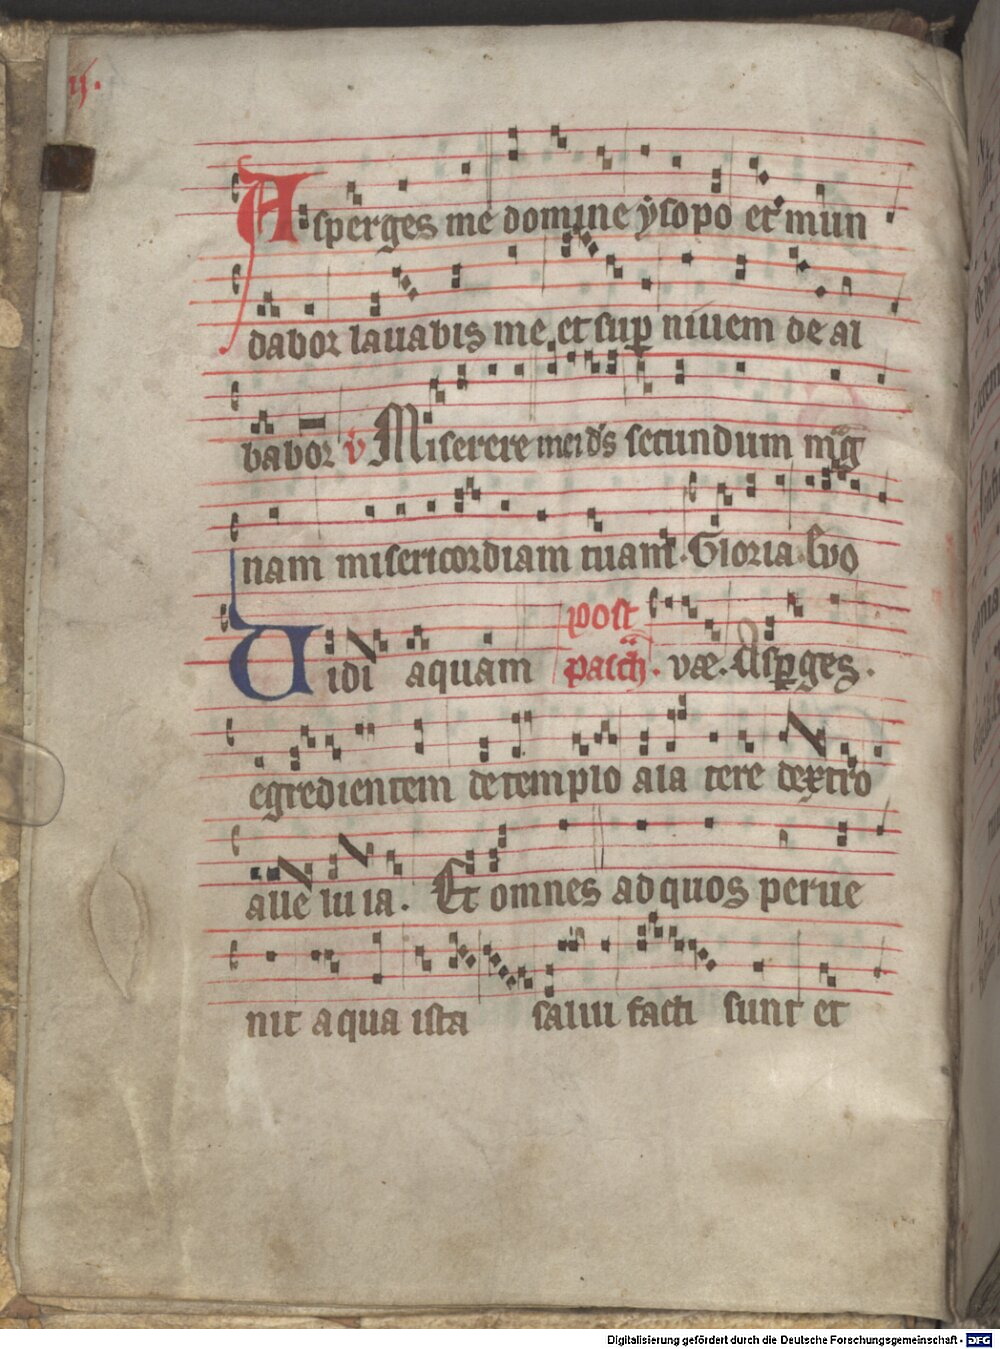 ij.
Asperges me domine ysopo et mun
dabor lavabis me et sup nivem de al
babor v Miserere mei ds secundum mag
nam misericordiam tuam. Gloria. Evo
post
Vidi aquam pasch. væ. Asperges.
egredientem de templo a la tere dextro
alle lu ia. Et omnes ad quos perve
nit aqua ista salvi facti sunt et
Digitalisierung gefördert durch die Deutsche Forschungsgemeinschaft - DFG